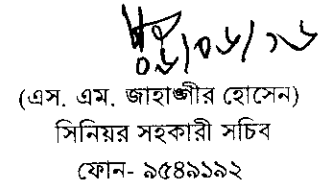 (এস. এম. জাহাঙ্গীর হোসেন)
সিনিয়র সহকারী সচিব
ফোন- ৯৫৪৯১৯২